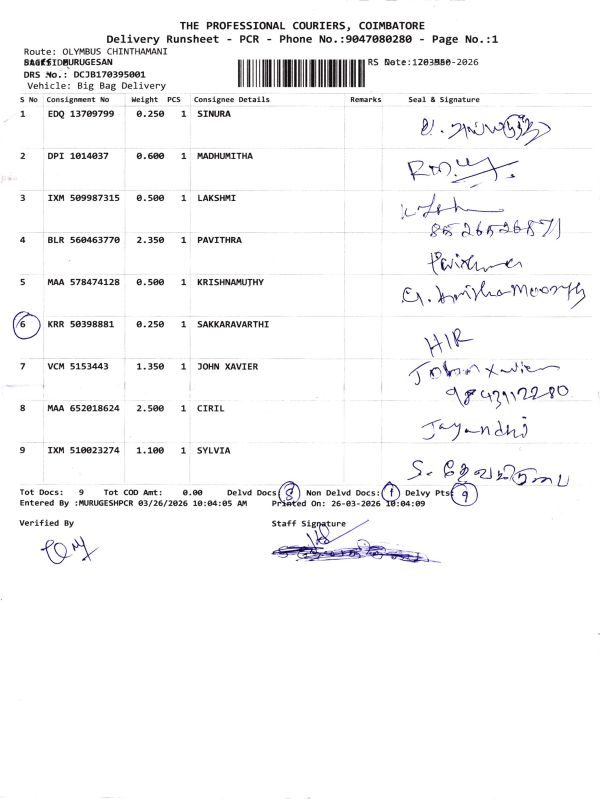 THE PROFESSIONAL COURIERS, COIMBATORE
Delivery Runsheet - PCR - Phone No.:9047080280 - Page No.:1
Route: OLYMBUS CHINTHAMANI
MURUGESAN
DRS No.: DCJB170395001
Vehicle: Big Bag Delivery
S No Consignment No Weight PCS Consignee Details Remarks Seal & Signature
1 EDQ 13709799 0.250 1 SINURA
2 DPI 1014037 0.600 1 MADHUMITHA
3 IXM 509987315 0.500 1 LAKSHMI
8526526871
4 BLR 560463770 2.350 1 PAVITHRA
5 MAA 578474128 0.500 1 KRISHNAMUTHY
6 KRR 50398881 0.250 1 SAKKARAVARTHI
H/R
7 VCM 5153443 1.350 1 JOHN XAVIER
John Xavier
9843112280
8 MAA 652018624 2.500 1 CIRIL
Jayandhi
9 IXM 510023274 1.100 1 SYLVIA
Tot Docs: 9 Tot COD Amt: 0.00 Delvd Docs: 8 Non Delvd Docs: 1 Delvy Pts: 9
Entered By :MURUGESHPCR 03/26/2026 10:04:05 AM Printed On: 26-03-2026 10:04:09
Verified By Staff Signature